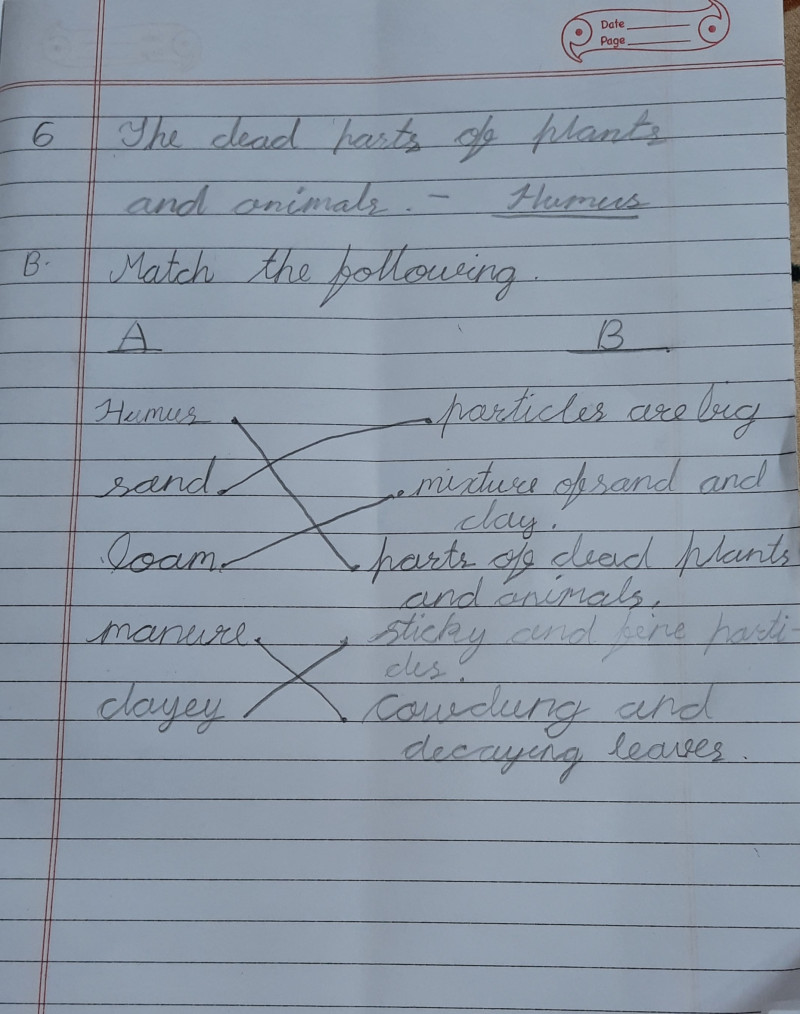 Date
Page
6 The dead parts of plants
and animals. - Humus
B. Match the following.
A B
Humus particles are big
sand mixture of sand and
clay.
loam parts of dead plants
and animals.
manure sticky and fine parti-
cles.
clayey Cowdung and
decaying leaves.